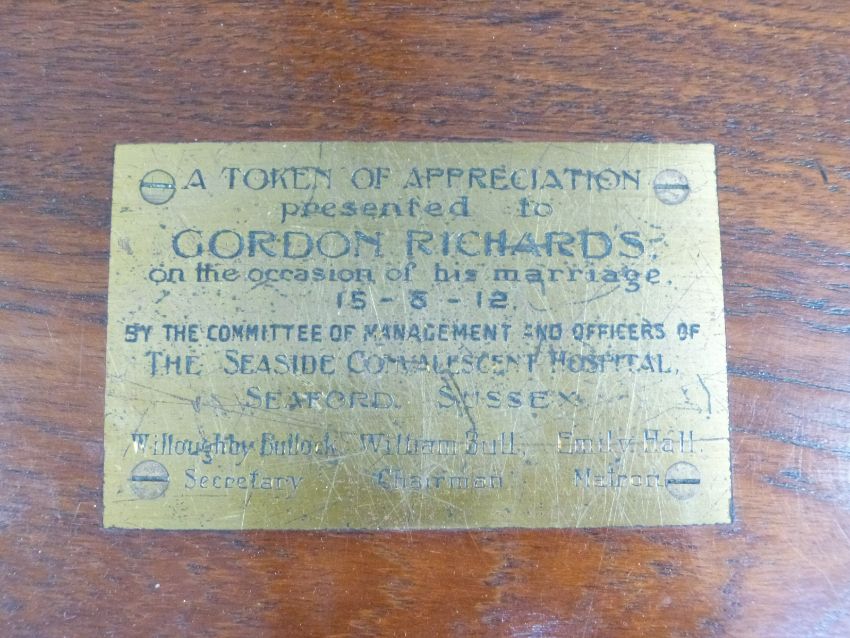 A TOKEN OF APPRECIATION
presented to
GORDON RICHARDS.
on the occasion of his marriage.
15 - 8 - 12.
BY THE COMMITTEE OF MANAGEMENT AND OFFICERS OF
THE SEASIDE CONVALESCENT HOSPITAL,
SEAFORD. SUSSEX.
Willoughby Bullock, William Bull, Emily Hall.
Secretary Chairman Matron.